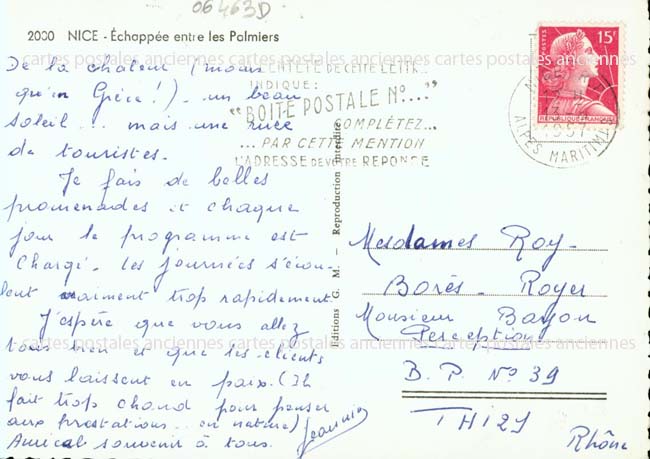 06463D
2000 NICE - Échappée entre les Palmiers
cartes postales anciennes cartes postales anciennes cartes postales anciennes
De la chaleur (moins
qu'en Grèce!) - un beau
soleil... mais une ruée
de touristes.
Je fais de belles
promenades et chaque
jour le programme est
chargé. Les journées s'écou-
lent vraiment trop rapidement.
J'espère que vous allez
tous bien et que les clients
vous laissent en paix. (Ih
fait trop chaud pour penser
aux prestations en nature)
Amical souvenir à tous.
cartes postales anciennes cartes postales anciennes cartes postales anciennes
EN TÊTE DE CETTE LETTR...
INDIQUE:
"BOITE POSTALE N°..."
COMPLÉTEZ...
...PAR CETTE MENTION
L'ADRESSE DE VOTRE REPONSE
Editions G. M. - Reproduction interdite
15F
POSTES
REPUBLIQUE FRANÇAISE
1957
ALPES MARITIMES
Mesdames Roy-
Borès - Royer
Monsieur Bayon
Perception
B. P. N° 39
THIZY
Rhône